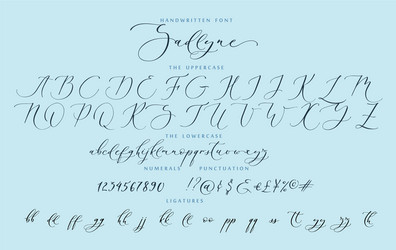 HANDWRITTEN FONT
Sadlyne
THE UPPERCASE
A B C D E F G H I J K L M
N O P Q R S T U V W X Y Z
THE LOWERCASE
abcdefghijklmnopqrstuvwxyz
NUMERALS PUNCTUATION
1234567890 !?@&$&€£¥%©#
LIGATURES
bb dd ff gg hh ll oo pp qq ss tt yy zz